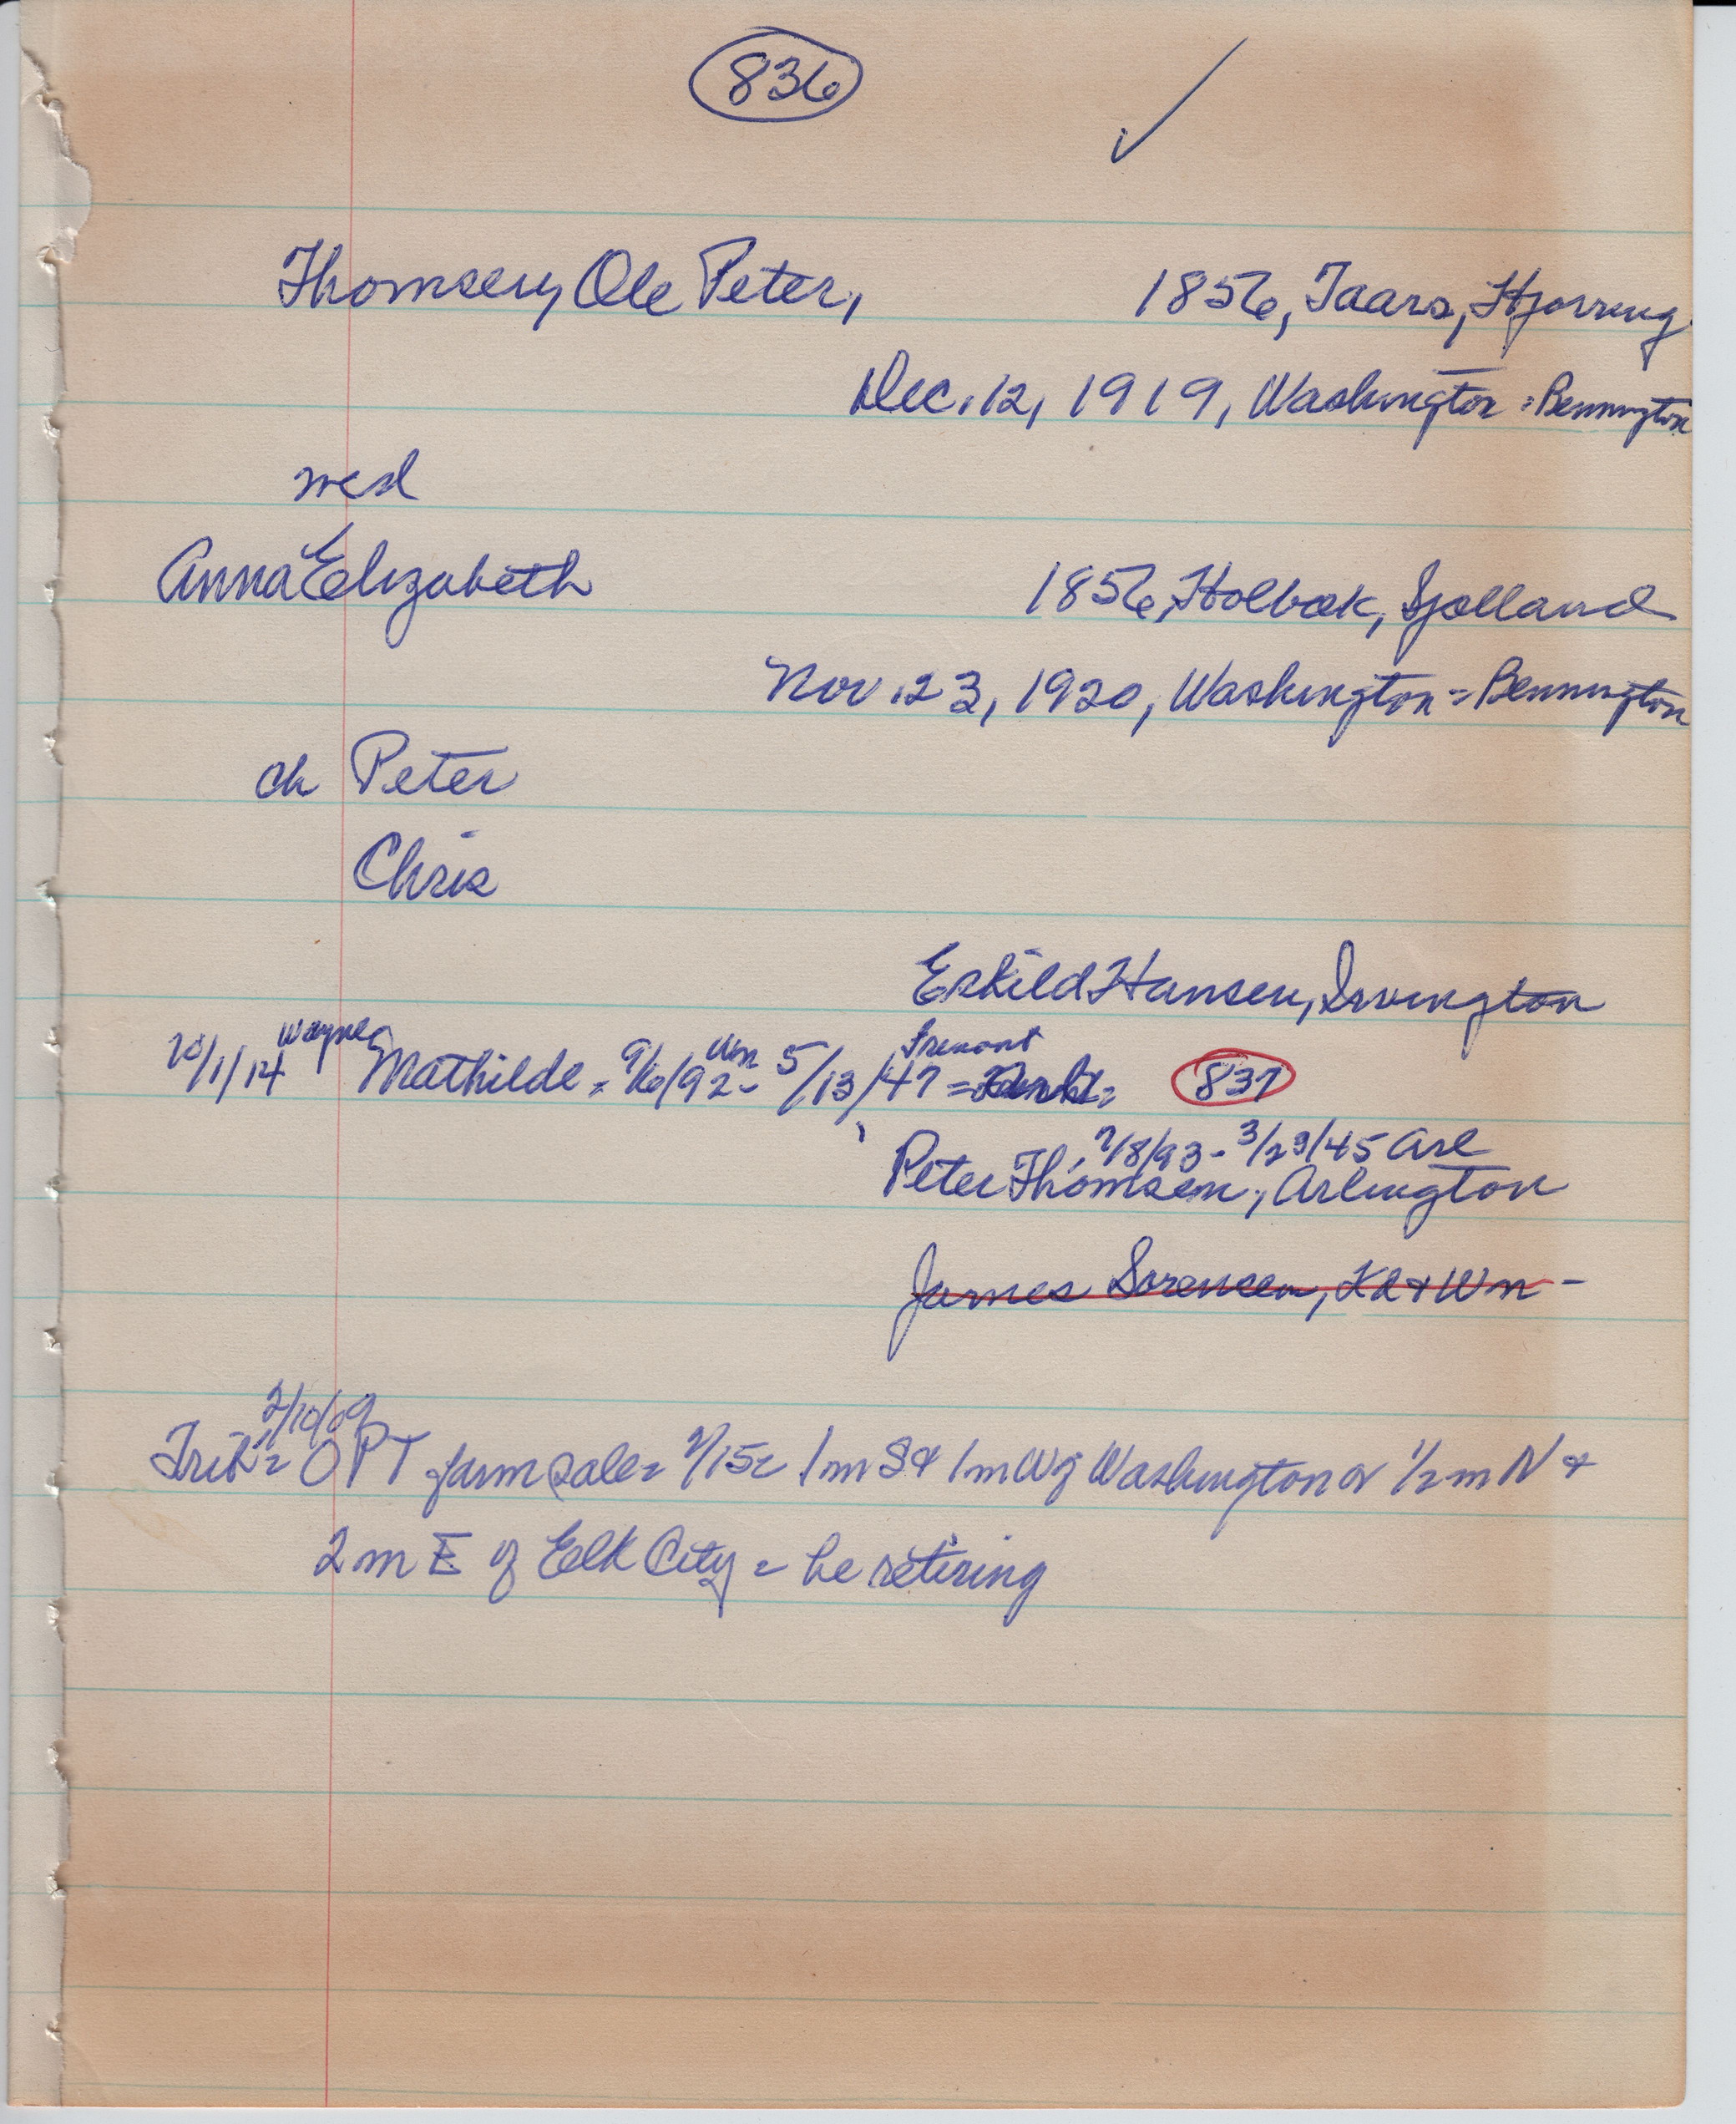 836
Thomsen, Ole Peter, 1856, Taars, Hjorring
Dec. 12, 1919, Washington = Bennington
med
Anna Elizabeth 1856, Holbæk, Sjælland
Nov. 23, 1920, Washington = Bennington
ch Peter
Chris
Eskild Hansen, Irvington
Wayne Wn Fremont
10/1/14 Mathilde = 9/6/92 - 5/13/47 = 837
7/8/93 - 3/23/45 Arl
Peter Thomsen, Arlington
James Sorensen, Kd & Wn -
2/10/09
Trib = OPT farm sale = 2/15 = 1 m S & 1 m W of Washington or 1/2 m N &
2 m E of Elk City = he retiring